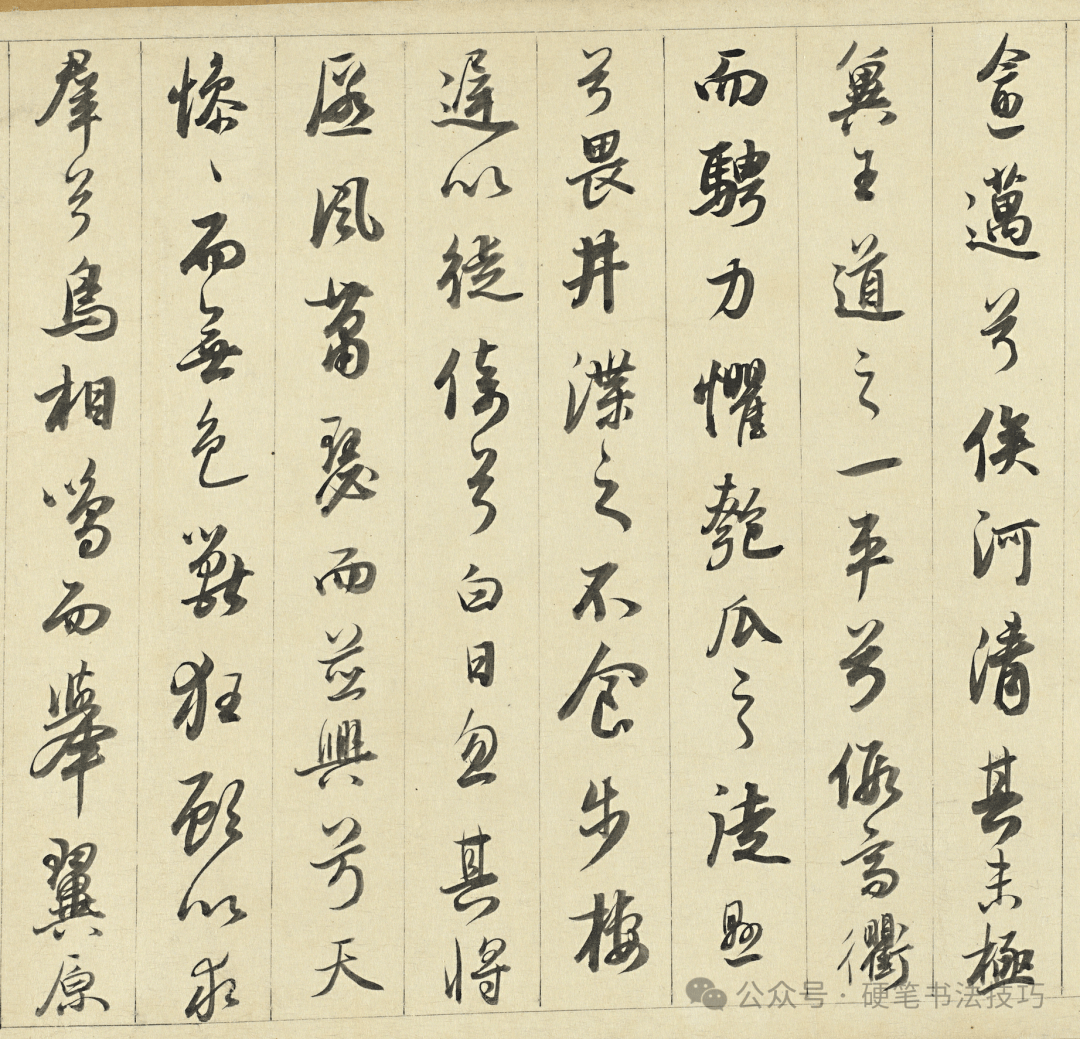 逾邁兮俟河清其未極
冀王道之一平兮假高衢
而騁力懼匏瓜之徒懸
兮畏井渫之不食步棲
遲以徙倚兮白日忽其將
匿風蕭瑟而並興兮天
慘〻而無色獸狂顧以求
羣兮鳥相鳴而舉翼原
公众号·硬笔书法技巧